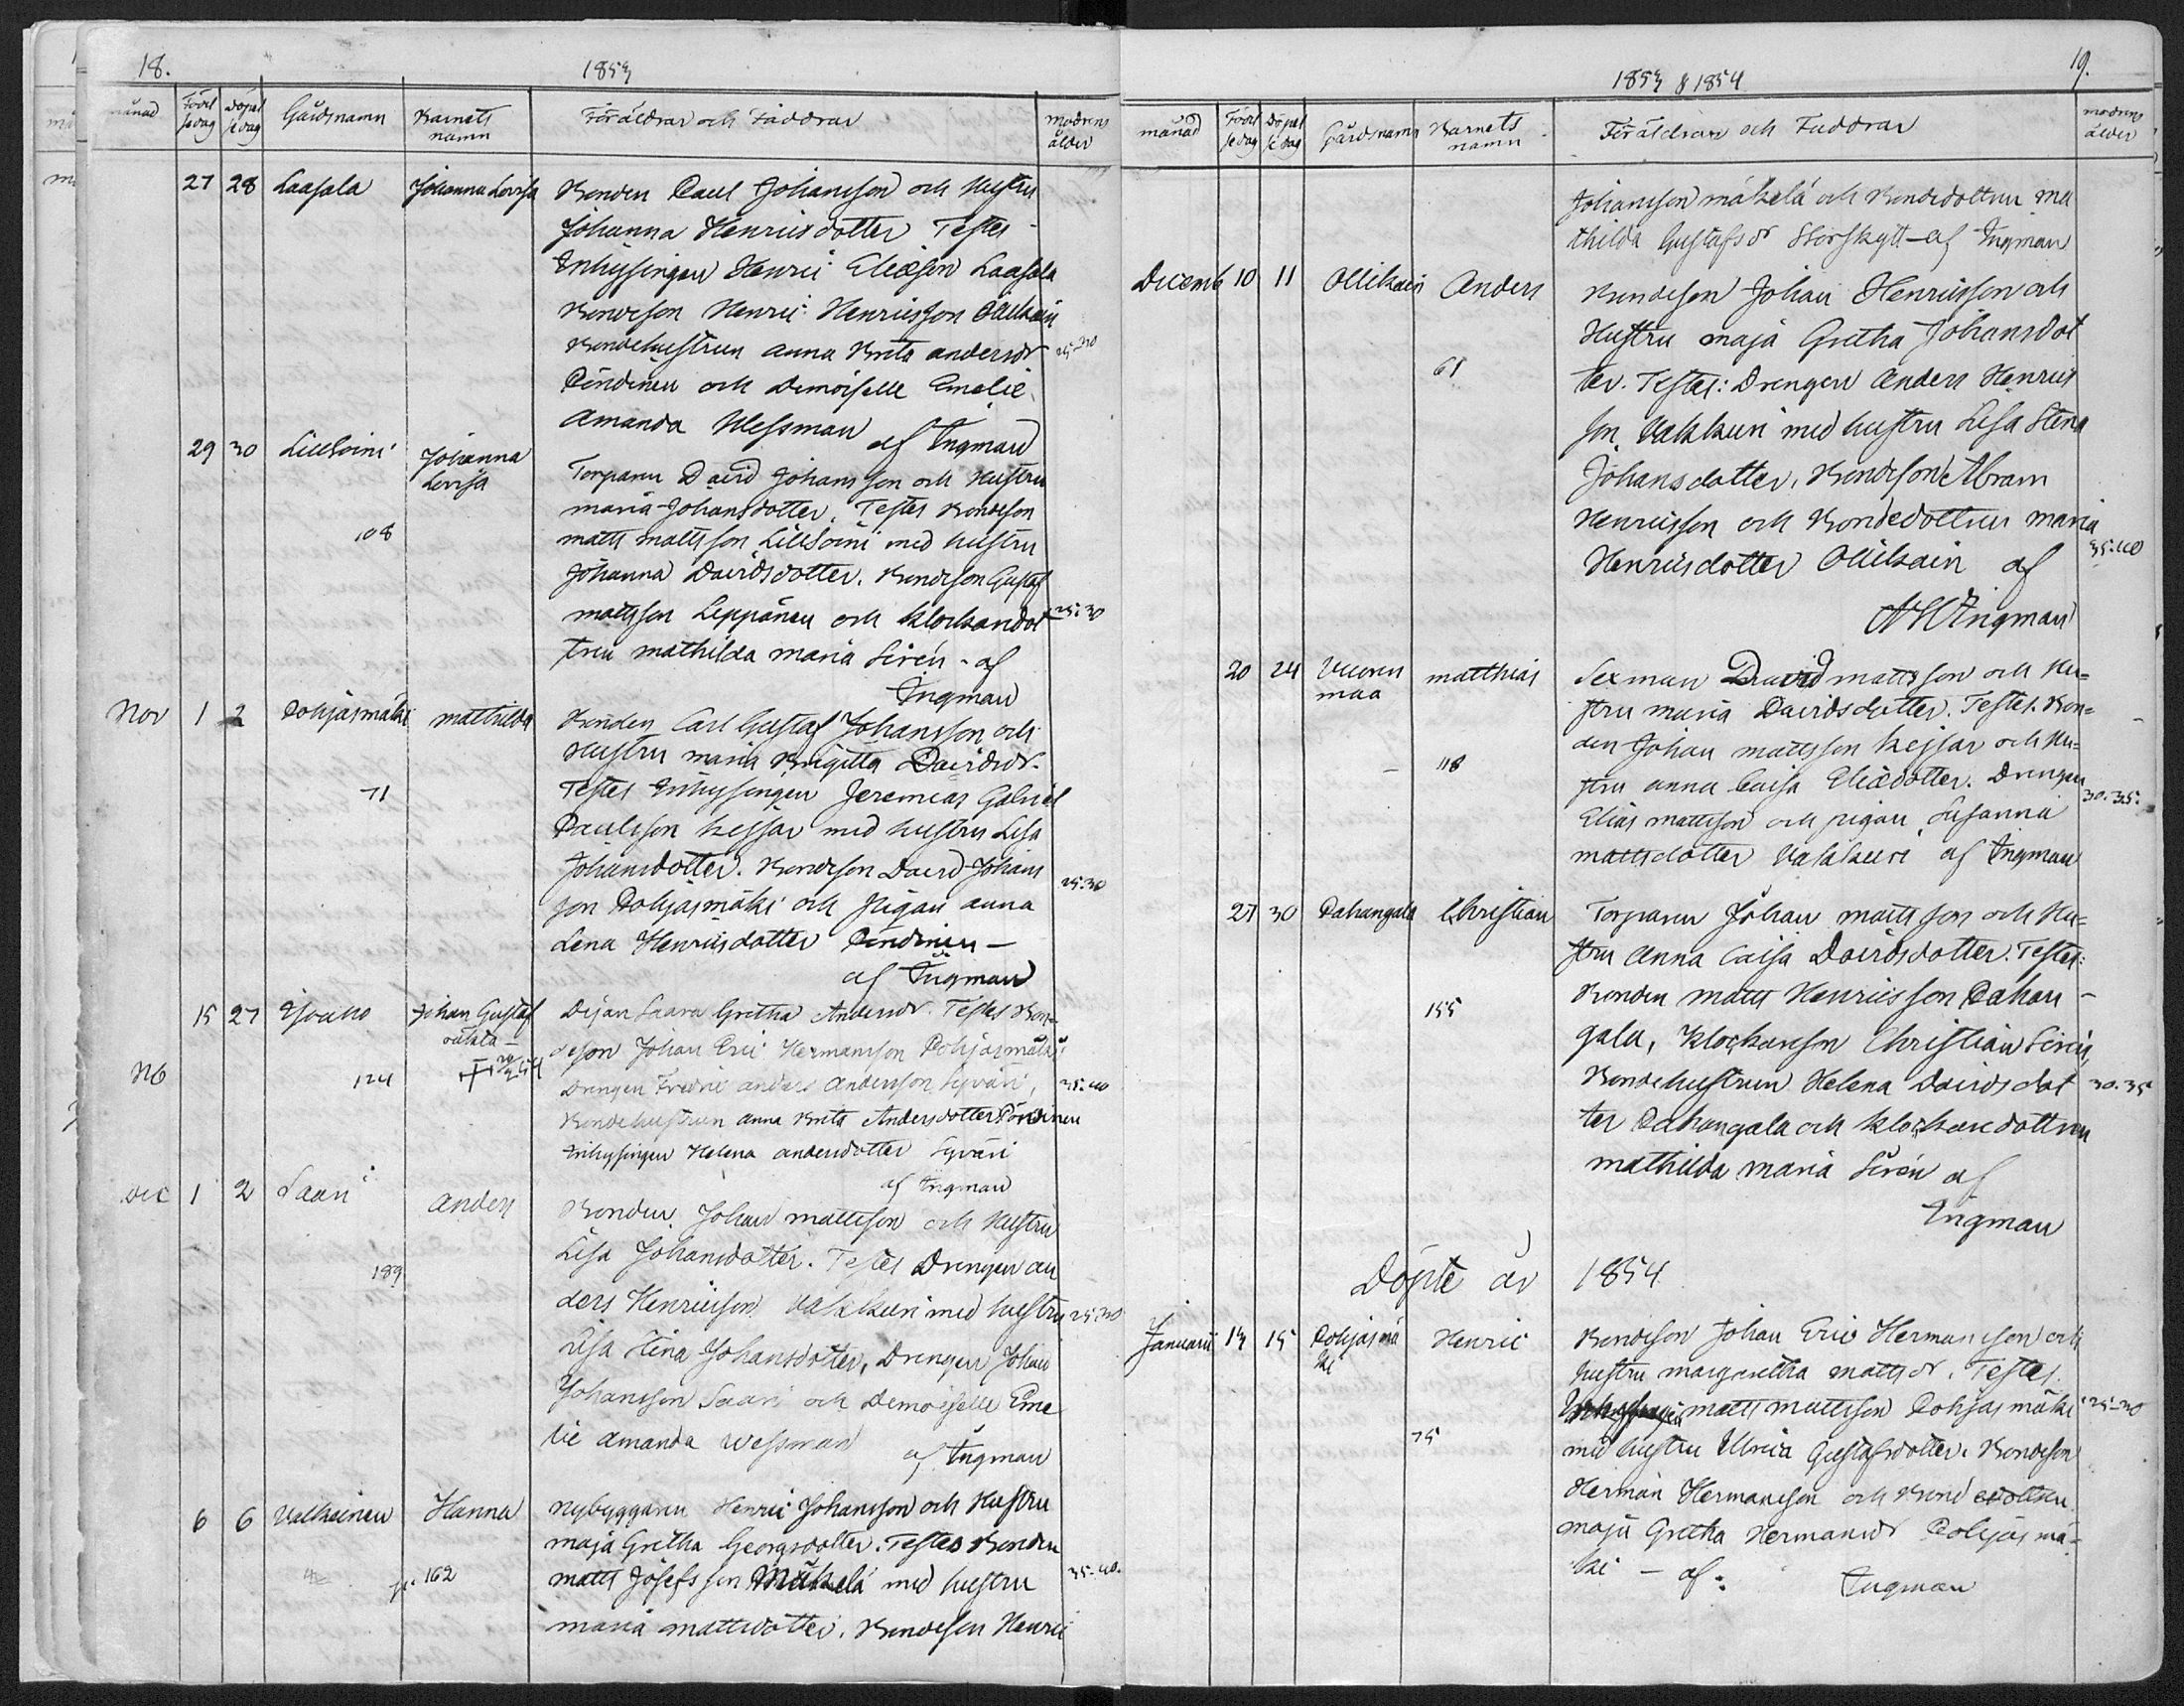 18.
1853
månad Född sedag Döpel se dag Gårdsnamn Barnets namn Föräldrar och Faddrar modrens ålder
27 28 Laasala Johanna Lovisa Bonden Paul Johansson och Hustru
Johanna Henricsdotter Testes
Inhysingen Henric Eliæson Laasala
Bondeson Henric Henricsson Ollikain
Bondehustrun Anna Brita andersdr 25-30
Pöndinen och Demoiselle Emelie
Amanda Wessman af Ingman
29 30 LillSoini Johanna Lovisa
Torparn David Johansson och Hustru
maria Johansdotter. Testes Bondeson
108 matts mattsson LillSoini med hustru
Johanna Davidsdotter. Bondeson Gustaf
mattsson Leppänen och klockaredot 25:30
tren mathilda maria Sirén - af
Ingman
Nov 1 2 Pohjasmäki mathilda Bonden Carl Gustaf Johansson och
Hustru maria Brigitta Davidsdr.
71 Testes Inhysingen Jeremias Gabriel
Paulsson kejsar med hustru Lisa
Johansdotter. Bondeson David Johans
son Pohjasmäki och Pigan anna 25:30
Lena Henricsdotter Pöndinen —
af Ingman
15 27 Johan Gustaf oäkta — Pijan Saara Gretha Andersdr. Testes Bon-
deson Johan Eric Hermansson Pohjasmäki
NB 124 Drengen Fredric anders Andersson Syväri, 35:40
Bondehustrun anna Brita Andersdotter Pöndinen
Inhysingen Helena andersdotter Syväri
af Ingman
Dec 1 2 Saari anders Bonden Johan mattsson och Hustru
Lisa Johansdotter. Testes Drengen an
189
ders Henricsson Vakkuri med hustru 25:30
Lisa Stina Johansdotter, Drengen Johan
Johansson Saari och Demoiselle Eme
lie Amanda Wessman af Ingman
6 6 Valkeinen Hanna Nybyggaren Henric Johansson och Hustru
maja Gretha Georgsdotter. Testes Bonden
162 matts Josefsson Mäkelä med hustru 35-40.
maria mattsdotter. Bondeson Henric
19.
1853 & 1854
månad Född se dag Döpel se dag Gårdsnamn Barnets namn Föräldrar och Faddrar modrens ålder
Johansson mäkelä och Bondedottren Ma
thilda Gustafsdr Storskytt - af Ingman
Decemb 10 11 Ollikain Anders Bondeson Johan Henricsson och
Hustru maja Gretha Johansdot
61 ter. Testes: Drengen Anders Henrics
son Vakkuri med hustru Lisa Stina
Johansdotter, Bondeson Abram
Henricsson och Bondedottren maria
Henricsdotter Ollikain af 35:40
Ingman
20 24 Vuoren maa matthias Sexman David mattsson och Hu=
stru maria Davidsdotter. Testes. Bon=
118 den Johan mattsson kejsar och Hu=
stru anna Caisa Eliædotter. Drengen 30-35.
Elias mattsson och pigan Susanna
mattsdotter Vakkuri af Ingman
27 30 Pahangala Christian Torparn Johan mattsson och Hu=
stru Anna Caisa Davidsdotter. Testes:
155 Bonden matts Henricsson Pahan -
gala, klockareson Christian Sirén,
Bondehustrun Helena Davidsdot 30.35
ter Pahangala och klockaredottren
mathilda maria Sirén af
Ingman
Döpte år 1854
Januarii 14 15 Pohjasmä ki Henric Bondeson Johan Eric Hermansson och
hustru margaretha mattsdr. Testes.
matts mattsson Pohjasmäki 25-30
75 med hustru Ulrica Gustafsdotter. Bondeson
Herman Hermansson och Bondedottren
maja Gretha Hermansdr Pohjasmä-
ki - af: Ingman